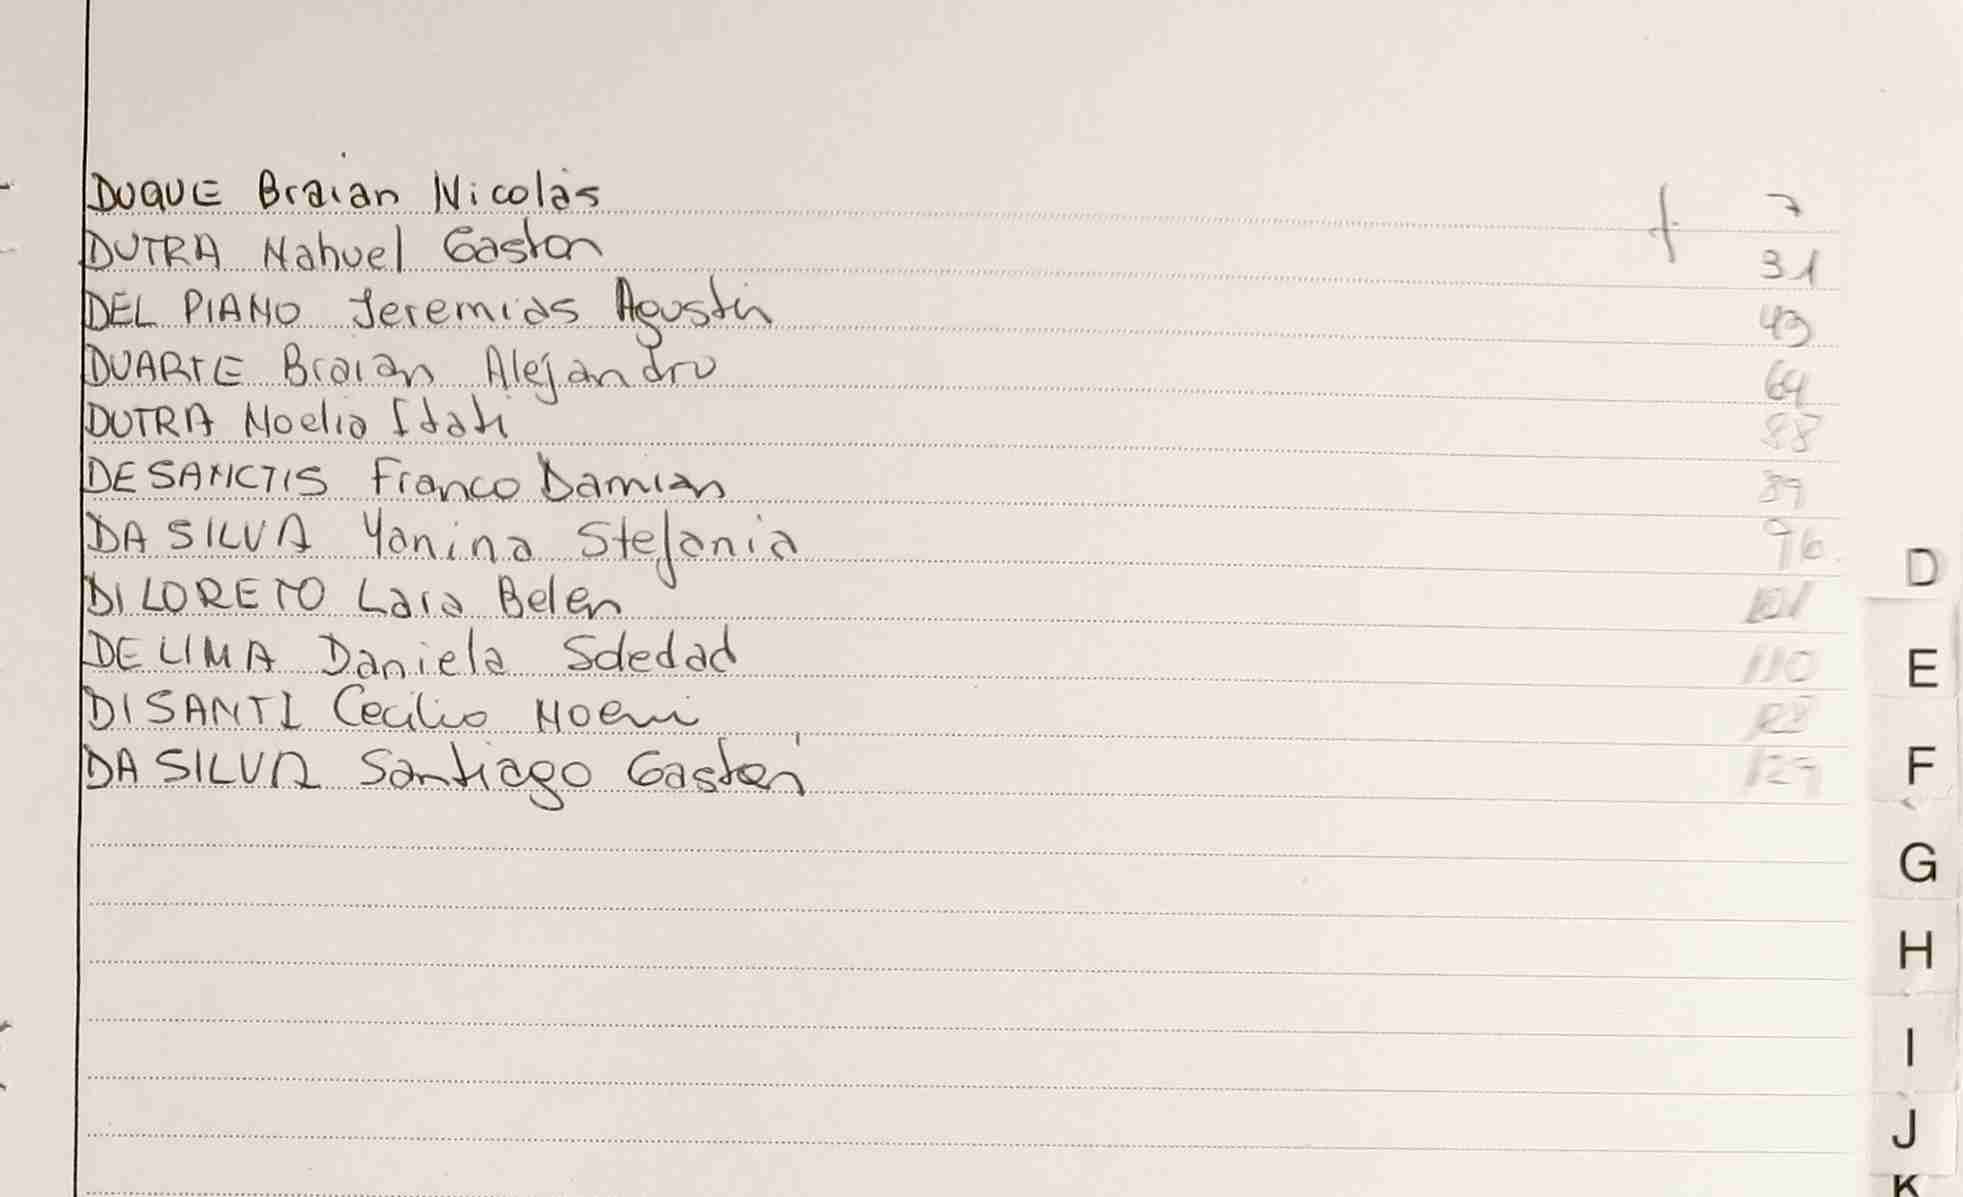 DUQUE Braian Nicolás f 7
DUTRA Nahuel Gaston 31
DEL PIANO Jeremias Agustin 49
DUARTE Braian Alejandro 64
DUTRA Noelia Itati 88
DESANCTIS Franco Damian 89
DA SILVA Yanina Stefania 96
DI LORETO Lara Belen 101
DE LIMA Daniela Soledad 110
DISANTI Cecilia Noemi
DA SILVA Santiago Gastón
D
E
F
G
H
I
J
K